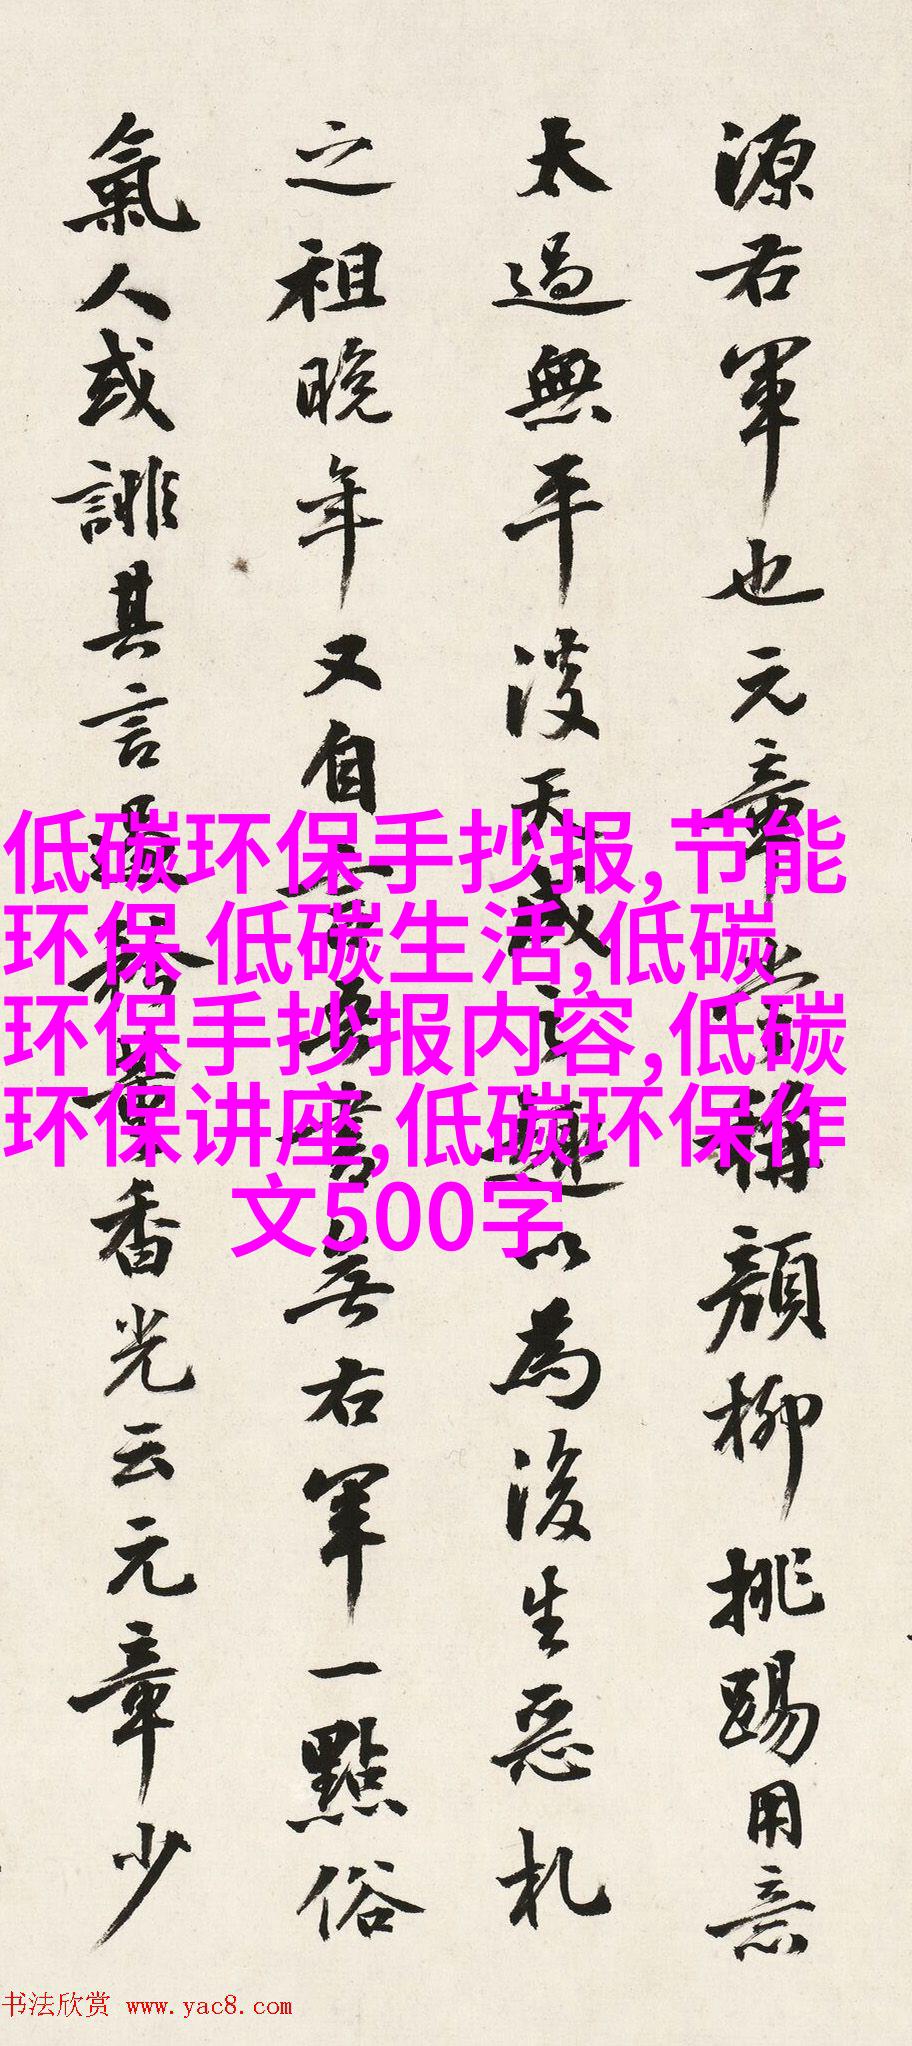 源右軍也元章嘗稱顏柳挑踢用意
太過無平淡天成之趣以為後生惡札
之祖晚年又自言吾書無右軍一點俗
氣人或誹其言香光云元章少
低碳环保手抄报,节能
环保 低碳生活,低碳
环保手抄报内容,低碳
环保讲座,低碳环保作
文500字
书法欣赏 www.yac8.com